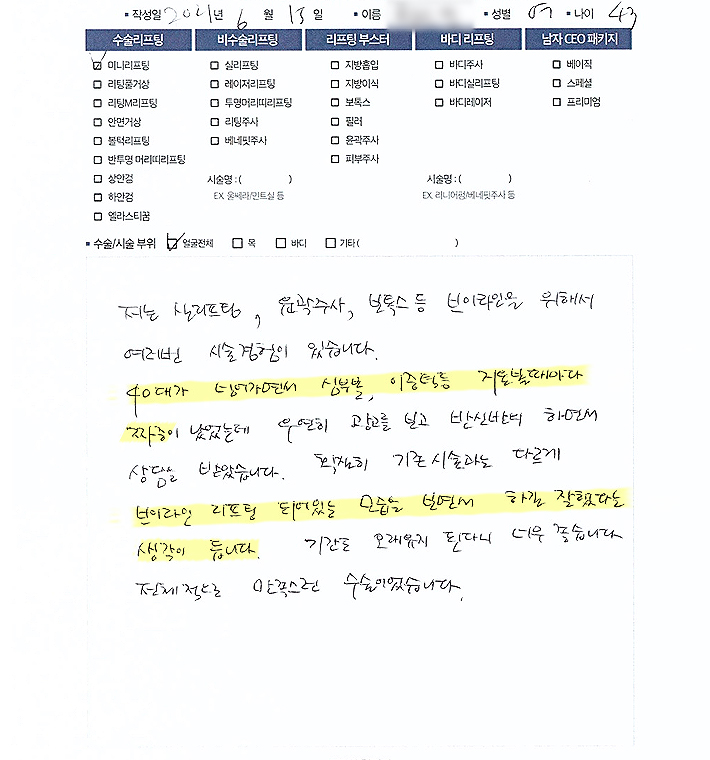 ▪ 작성일 2021년 6월 15일 ▪ 이름 ▪ 성별 여 ▪ 나이 43
수술리프팅 비수술리프팅 리프팅 부스터 바디 리프팅 남자 CEO 패키지
☑ 미니리프팅 ☐ 실리프팅 ☐ 지방흡입 ☐ 바디주사 ☐ 베이직
☐ 리팅풀거상 ☐ 레이저리프팅 ☐ 지방이식 ☐ 바디실리프팅 ☐ 스페셜
☐ 리팅M리프팅 ☐ 투명머리띠리프팅 ☐ 보톡스 ☐ 바디레이저 ☐ 프리미엄
☐ 안면거상 ☐ 리팅주사 ☐ 필러
☐ 볼턱리프팅 ☐ 베네핏주사 ☐ 윤곽주사
☐ 반투명 머리띠리프팅 ☐ 피부주사
☐ 상안검 시술명 : ( ) 시술명 : ( )
☐ 하안검 EX. 울쎄라/민트실 등 EX. 리니어펌/베네핏주사 등
☐ 엘라스티꿈
▪ 수술/시술 부위 ☑ 얼굴전체 ☐ 목 ☐ 바디 ☐ 기타 ( )
저는 실리프팅, 윤곽주사, 보톡스 등 브이라인을 위해서
여러번 시술경험이 있습니다.
40대가 넘어가면서 심부볼, 이중턱등 거울볼때마다
짜증이 났었는데 우연히 광고를 보고 반신반의 하면서
상담을 받았습니다. 확실히 기존시술과는 다르게
브이라인 리프팅 되어있는 모습을 보면서 하길 잘했다는
생각이 듭니다. 기간도 오래유지 된다니 너무 좋습니다
전체적으로 만족스런 수술이었습니다.